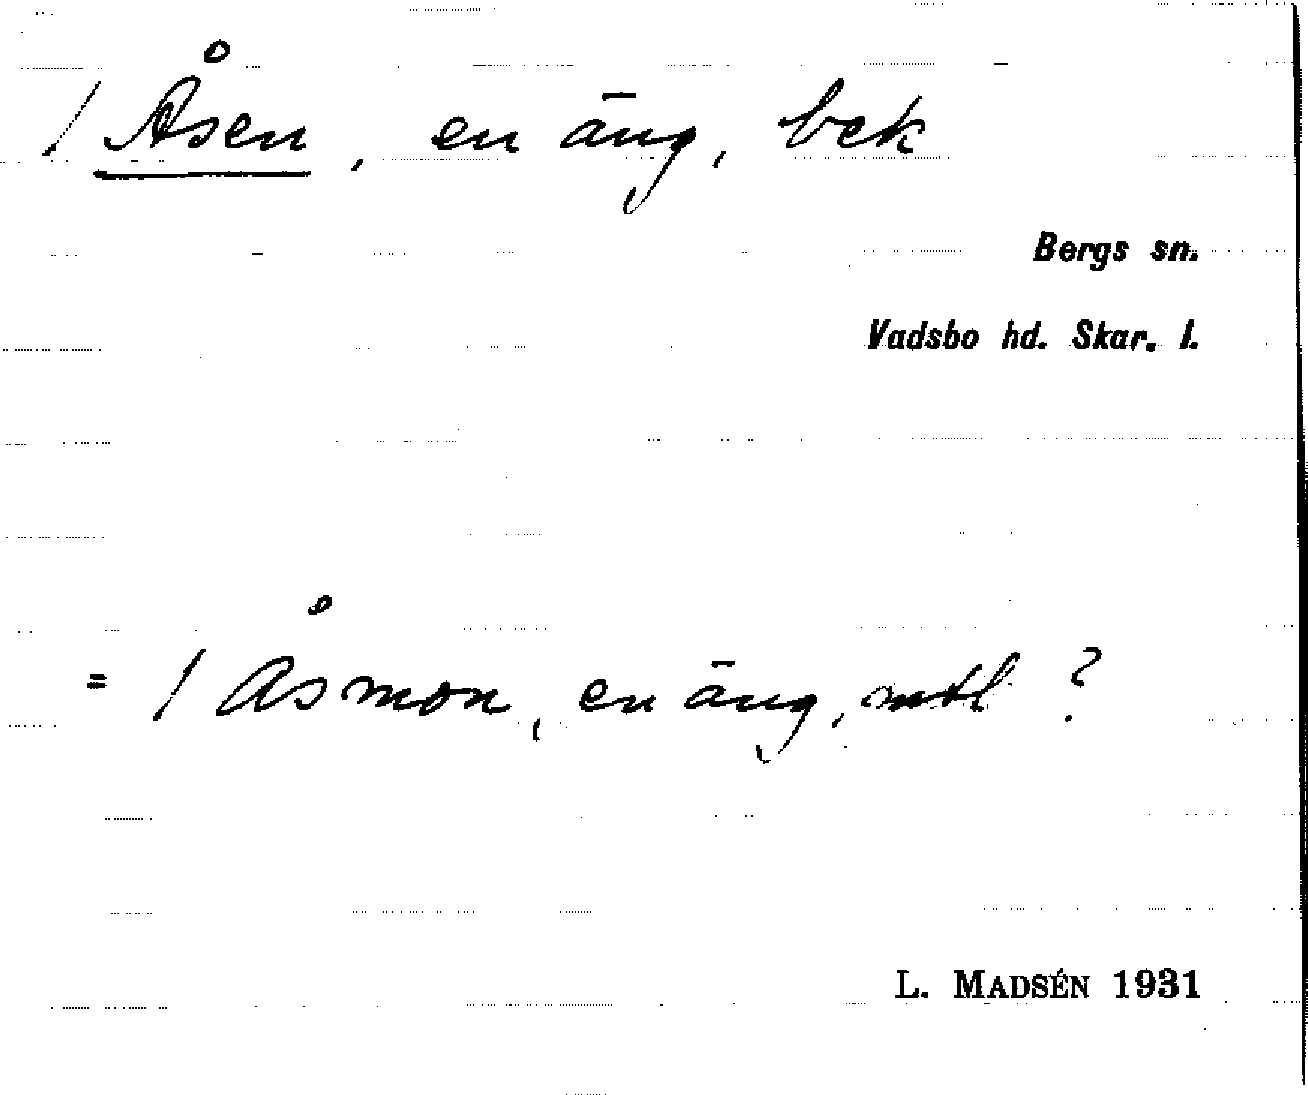 / Åsen, en äng, bek
Bergs sn.
Vadsbo hd. Skar. l.
= / Åsmon, en äng, mtl ?
L. MADSÉN 1931